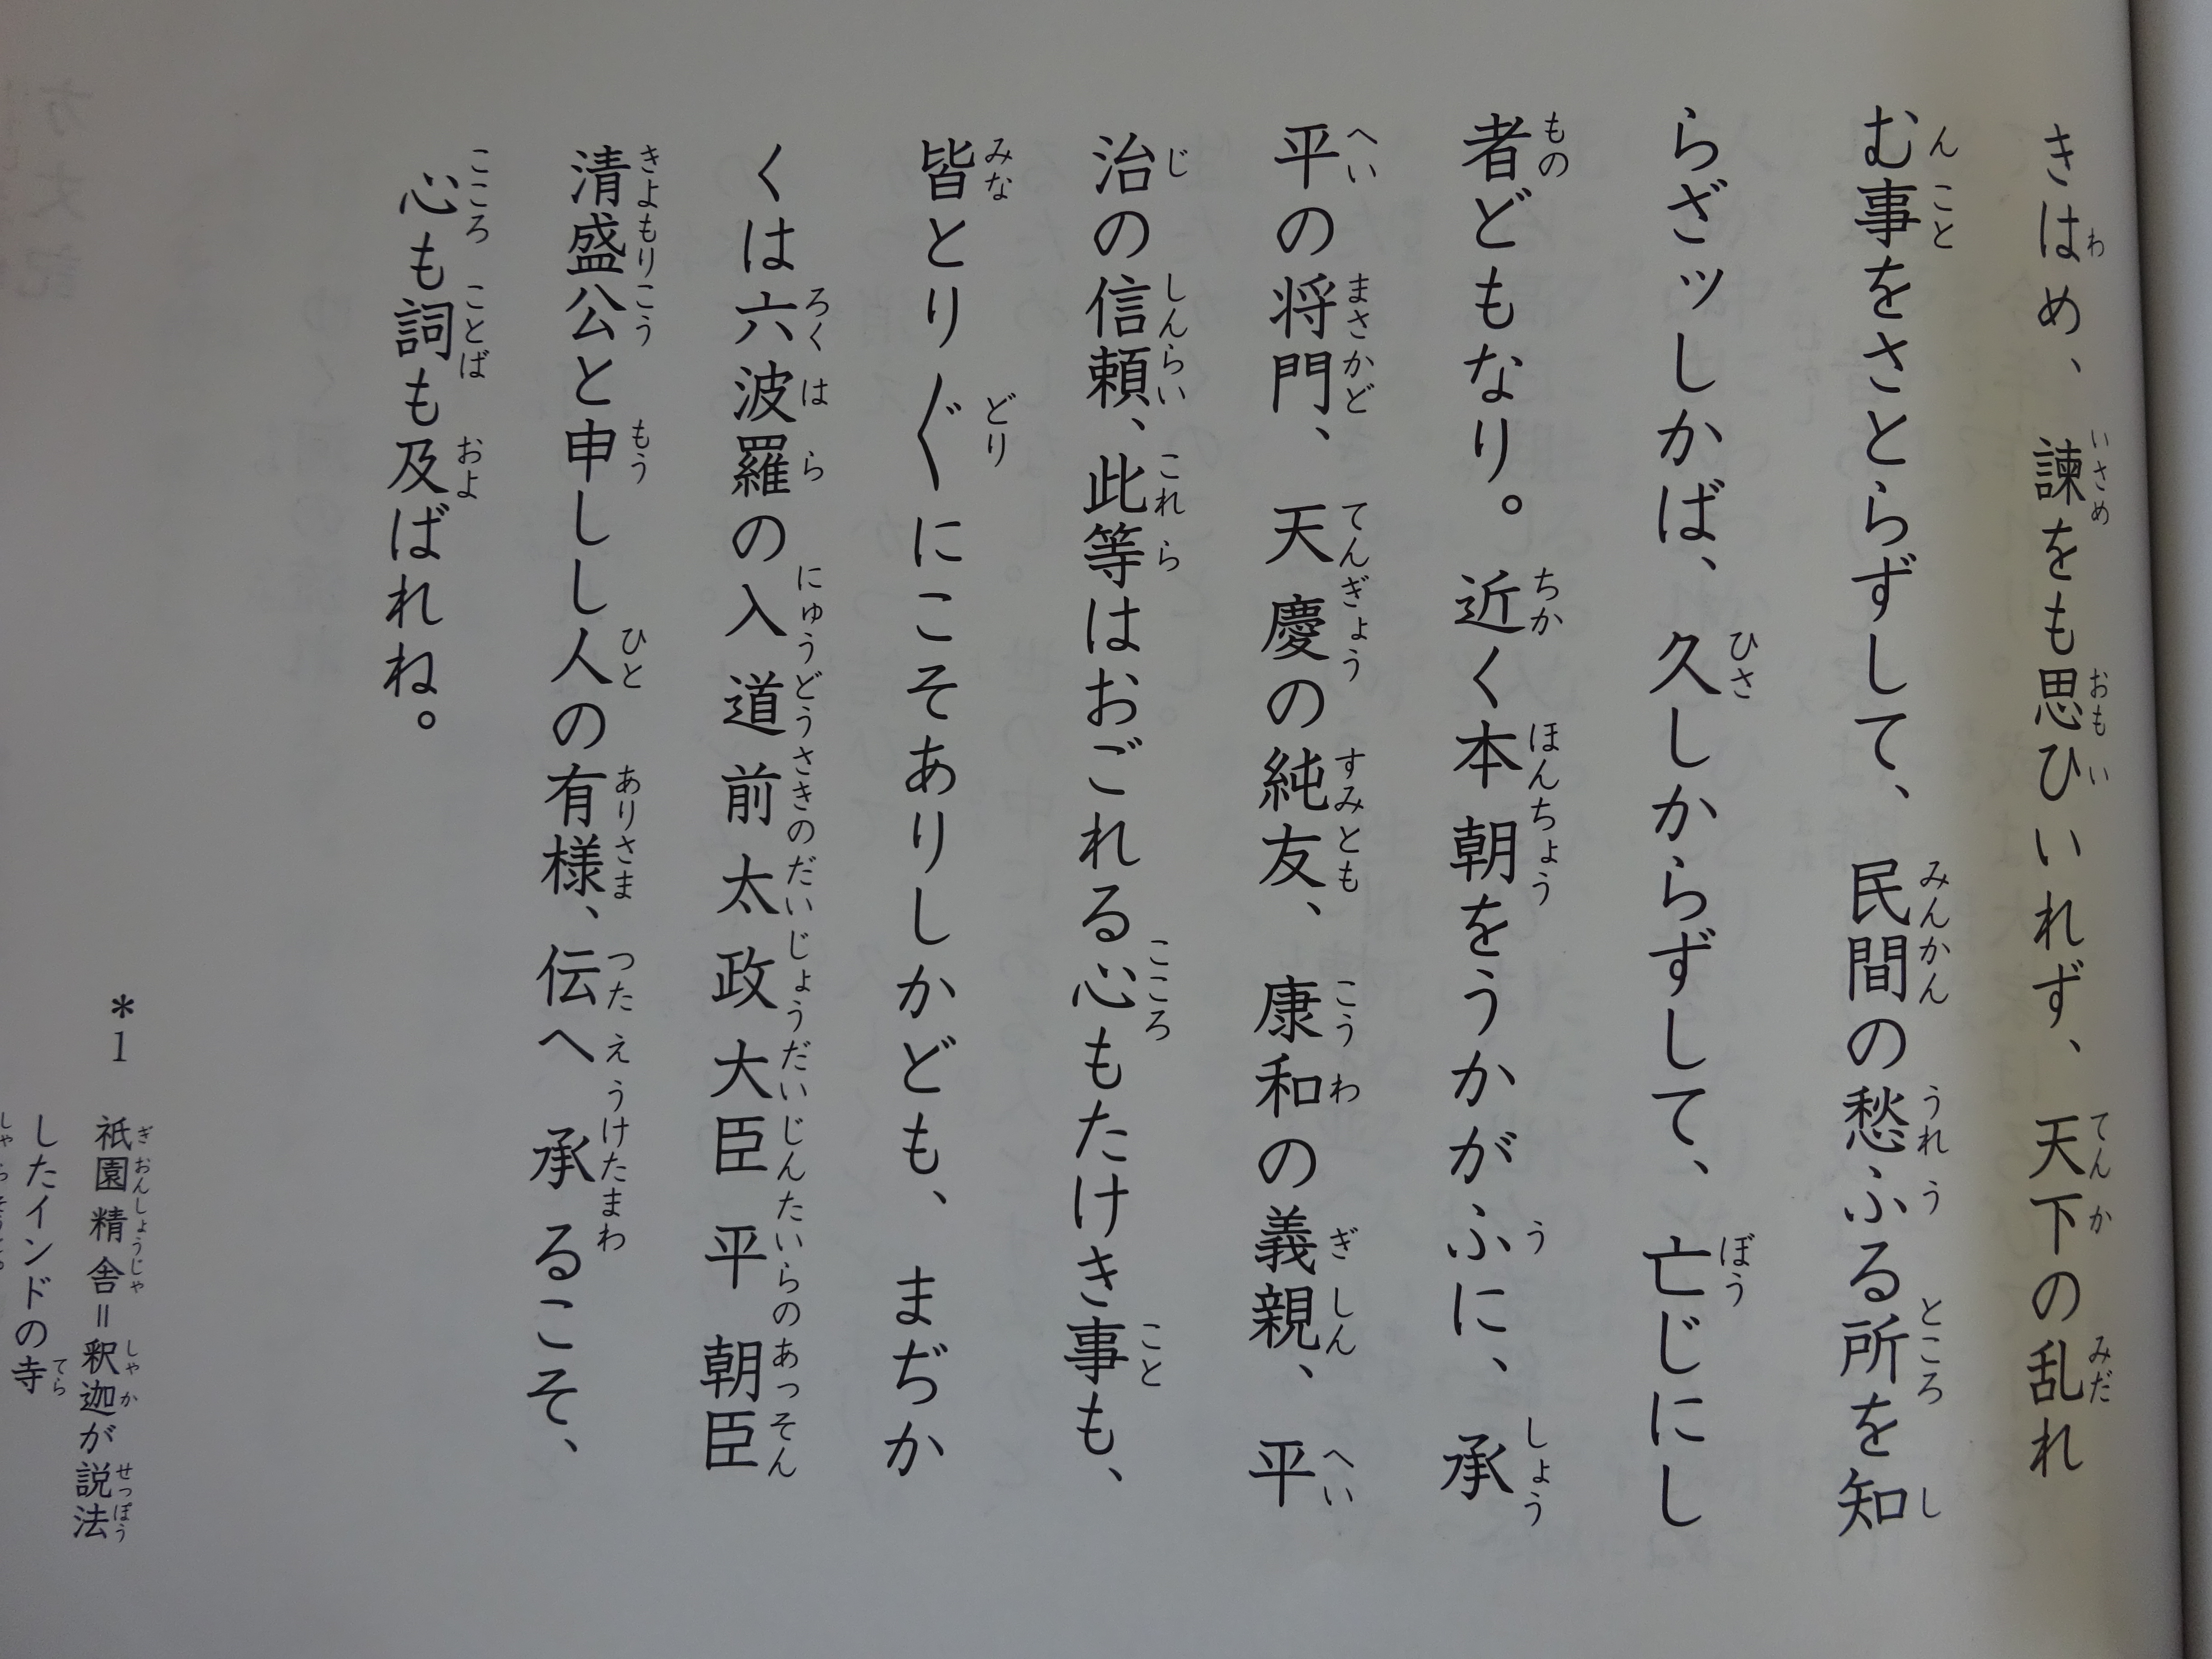 きはめ、諫をも思ひいれず、天下の乱れ
む事をさとらずして、民間の愁ふる所を知
らざッしかば、久しからずして、亡じにし
者どもなり。近く本朝をうかがふに、承
平の将門、天慶の純友、康和の義親、平
治の信頼、此等はおごれる心もたけき事も、
皆とり〴〵にこそありしかども、まぢか
くは六波羅の入道前太政大臣平朝臣
清盛公と申しし人の有様、伝へ承るこそ、
心も詞も及ばれね。
*1 祇園精舎=釈迦が説法
したインドの寺